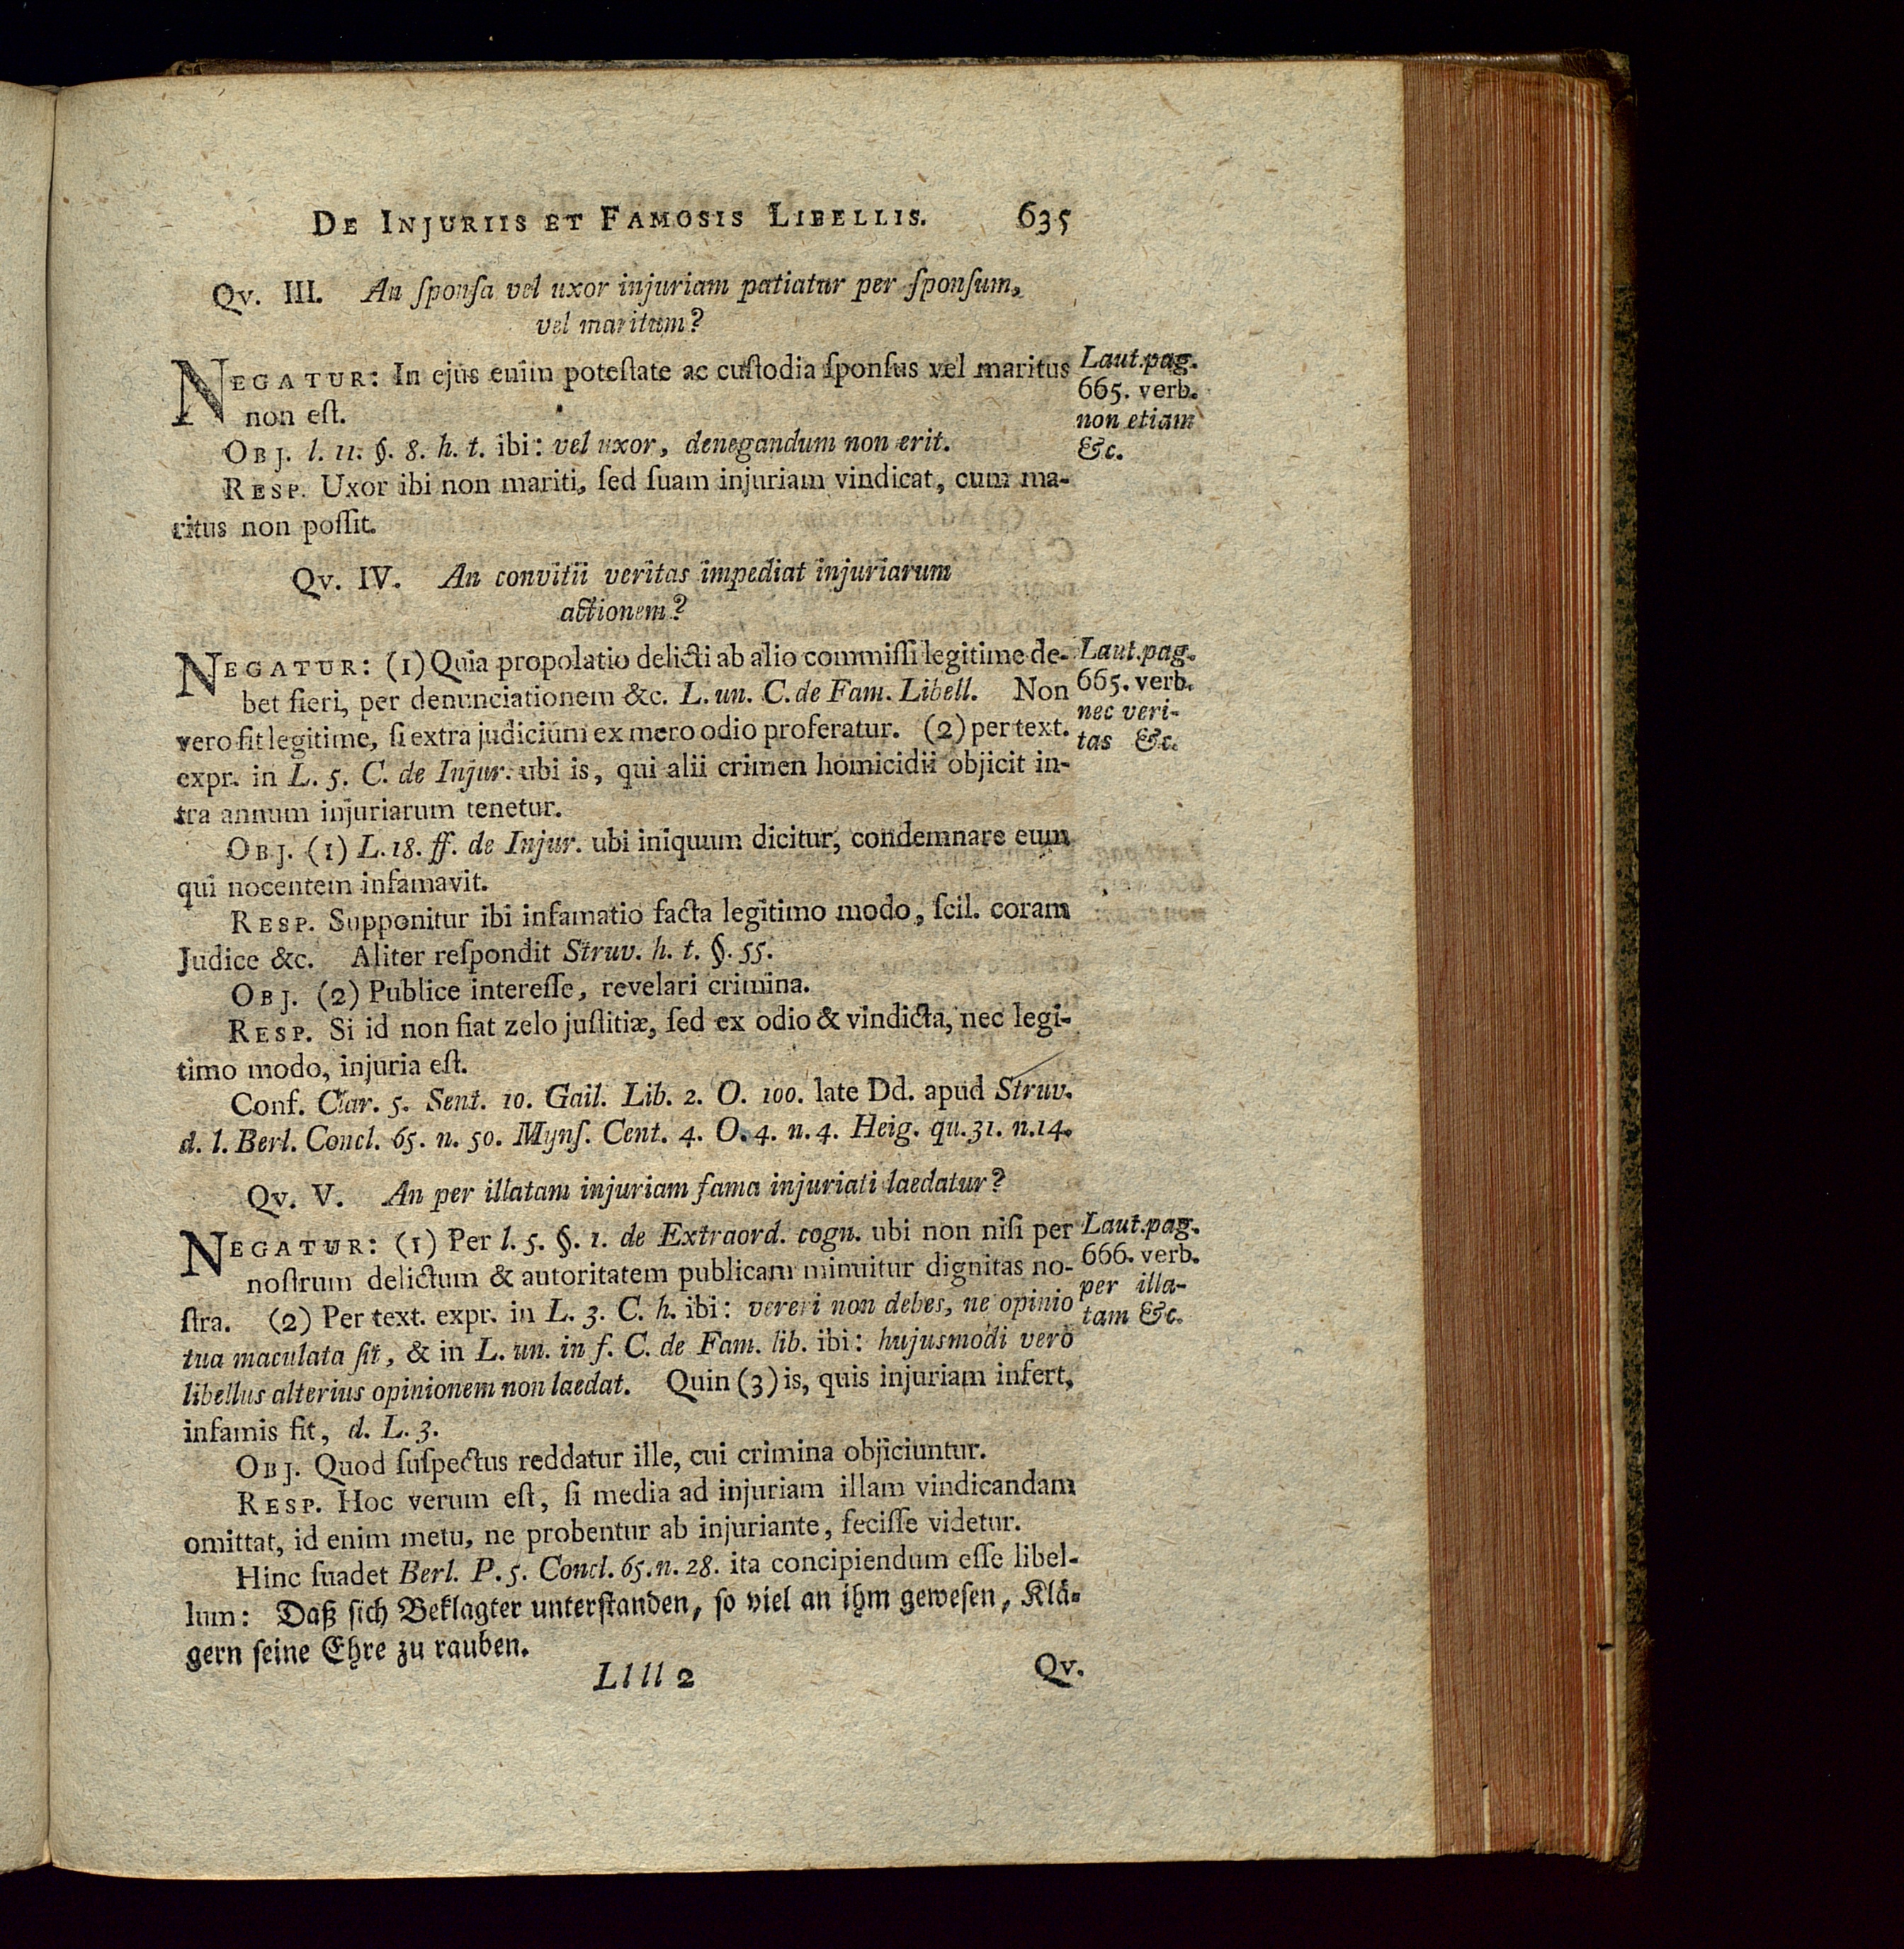 De Injuriis et Famosis Libellis. 635
Qv. III. An ſponſa vel uxor injuriam patiatur per ſponſum,
vel maritum?
NEGATUR: In ejus enim poteſtate ac cuſtodia ſponſus vel maritus
non eſt.
Laut. pag.
665. verb.
non etiam
&c.
OBJ. l. 11. §. 8. h. t. ibi: vel uxor, denegandum non erit.
RESP. Uxor ibi non mariti, ſed ſuam injuriam vindicat, cum ma-
ritus non poſſit.
Qv. IV. An convitii veritas impediat injuriarum
actionem?
NEGATUR: (1) Quia propolatio delicti ab alio commiſſi legitime de-
bet fieri, per denunciationem &c. L. un. C. de Fam. Libell. Non
vero fit legitime, ſi extra judicium ex mero odio proferatur. (2) per text.
expr. in L. 5. C. de Injur. ubi is, qui alii crimen homicidii objicit in-
tra annum injuriarum tenetur.
Laut. pag.
665. verb.
nec veri-
tas &c.
OBJ. (1) L. 18. ff. de Injur. ubi iniquum dicitur, condemnare eum
qui nocentem infamavit.
RESP. Supponitur ibi infamatio facta legitimo modo, ſcil. coram
Judice &c. Aliter reſpondit Struv. h. t. §. 55.
OBJ. (2) Publice intereſſe, revelari crimina.
RESP. Si id non fiat zelo juſtitiæ, ſed ex odio & vindicta, nec legi-
timo modo, injuria eſt.
Conf. Clar. 5. Sent. 10. Gail. Lib. 2. O. 100. late Dd. apud Struv.
d. l. Berl. Concl. 65. n. 50. Mynſ. Cent. 4. O. 4. n. 4. Heig. qu. 31. n. 14.
Qv. V. An per illatam injuriam fama injuriati laedatur?
NEGATUR: (1) Per l. 5. §. 1. de Extraord. cogn. ubi non niſi per
noſtrum delictum & autoritatem publicam minuitur dignitas no-
ſtra. (2) Per text. expr. in L. 3. C. h. ibi: vereri non debes, ne opinio
tua maculata ſit, & in L. un. in f. C. de Fam. lib. ibi: hujusmodi vero
libellus alterius opinionem non laedat. Quin (3) is, quis injuriam infert,
infamis fit, d. L. 3.
Laut. pag.
666. verb.
per illa-
tam &c.
OBJ. Quod ſuſpectus reddatur ille, cui crimina objiciuntur.
RESP. Hoc verum eſt, ſi media ad injuriam illam vindicandam
omittat, id enim metu, ne probentur ab injuriante, feciſſe videtur.
Hinc ſuadet Berl. P. 5. Concl. 65. n. 28. ita concipiendum eſſe libel-
lum: Daß ſich Beklagter unterſtanden, ſo viel an ihm geweſen, Klä-
gern ſeine Ehre zu rauben.
Llll 2 Qv.